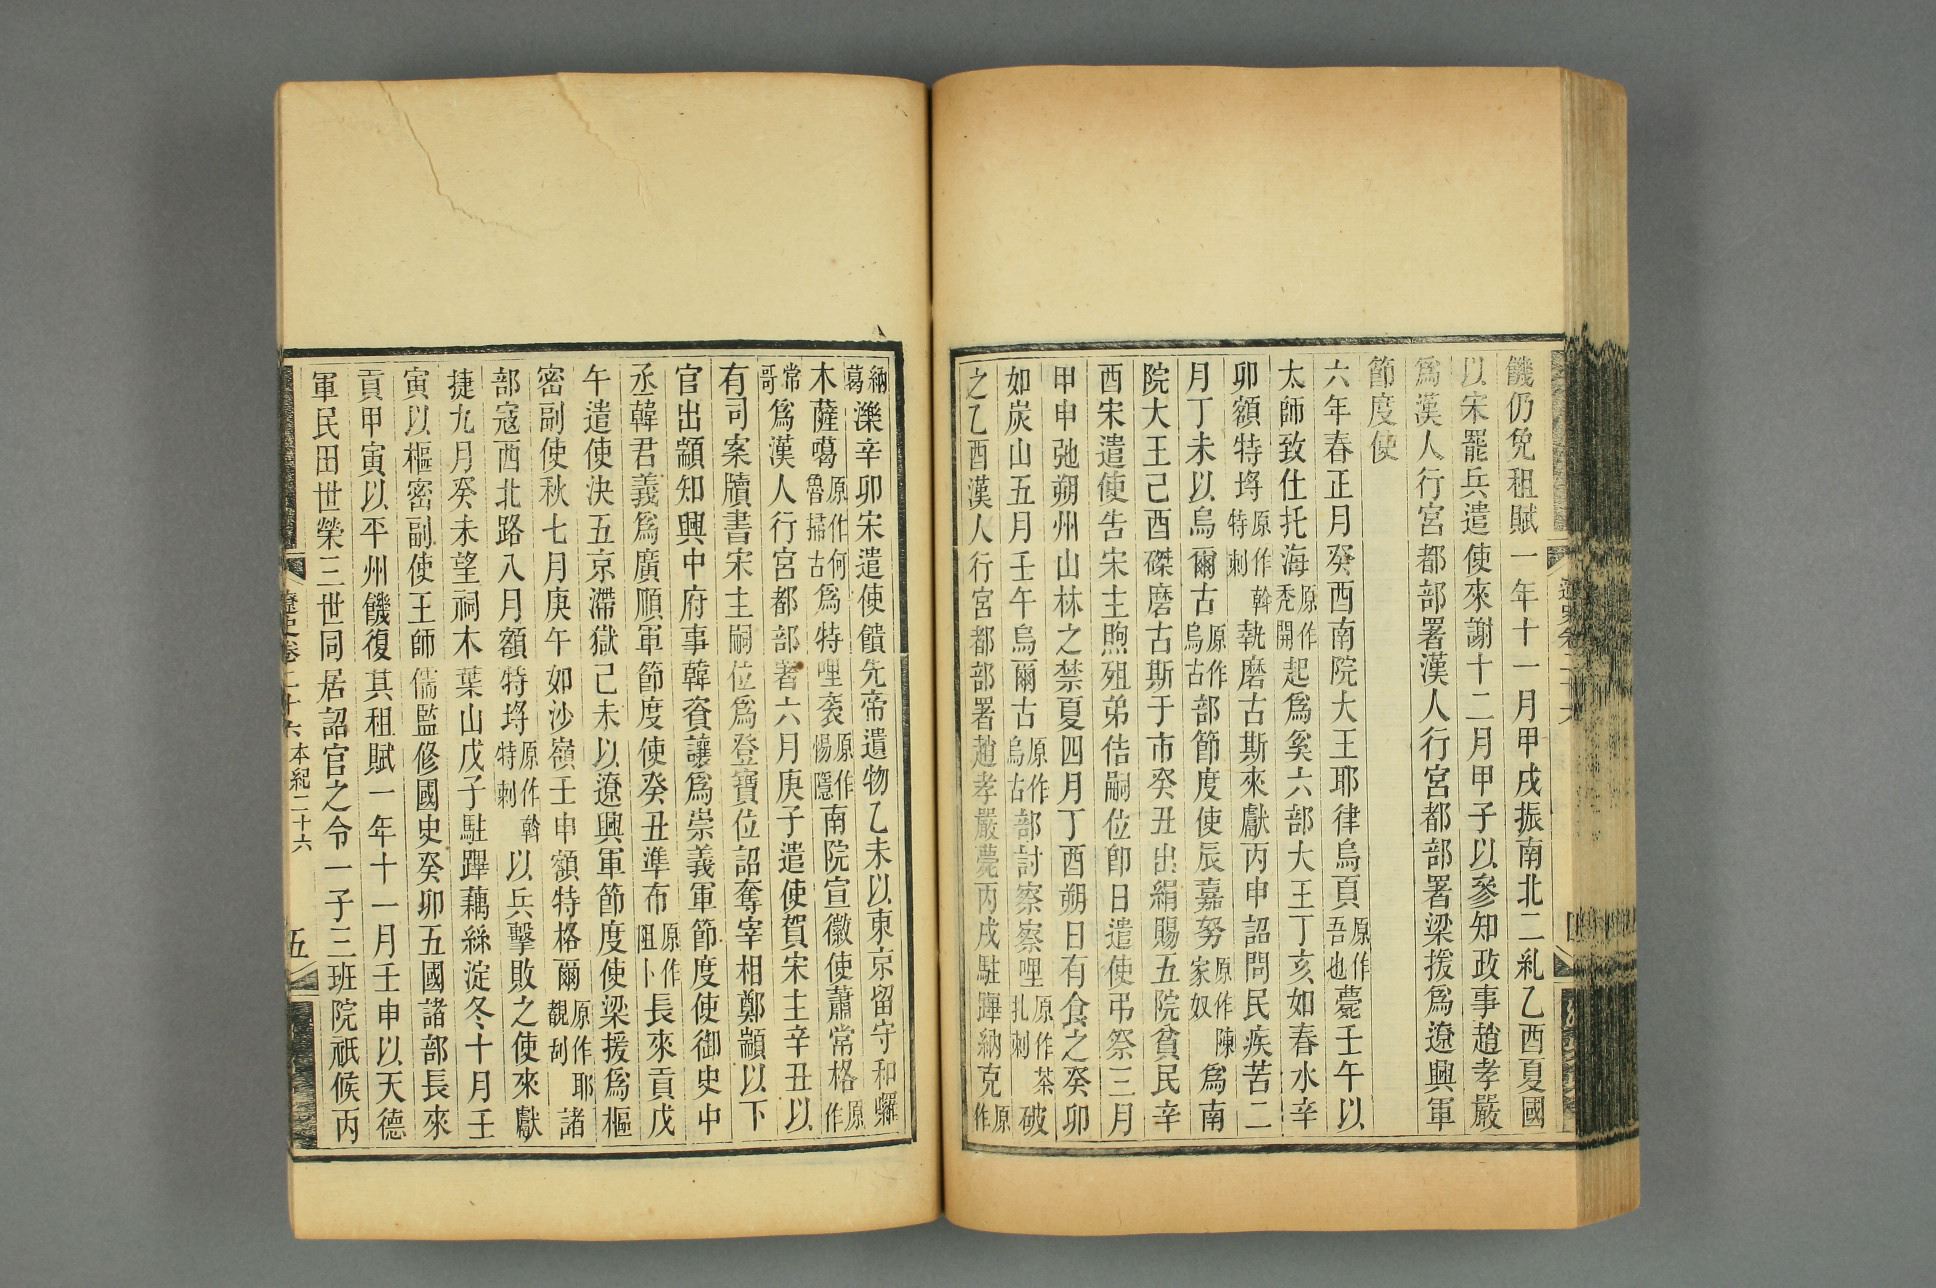 饑仍免租賦一年十一月甲戌振南北二糺乙酉夏國
以宋罷兵遣使來謝十二月甲子以參知政事趙孝嚴
爲漢人行宮都部署漢人行宮都部署梁援爲遼興軍
節度使
六年春正月癸酉南院大王耶律烏頁原作吾也薨壬午以
太師致仕托海原作禿開起爲奚六部大王丁亥如春水辛
卯額特埒原作斡特剌執磨古斯來獻丙申詔問民疾苦二
月丁未以烏爾古原作烏古部節度使辰嘉努原作陳家奴爲南
院大王己酉磔磨古斯于市癸丑出絹賜五院貧民辛
酉宋遣使告宋主煦殂弟佶嗣位卽日遣使弔祭三月
甲申弛朔州山林之禁夏四月丁酉朔日有食之癸卯
如炭山五月壬午烏爾古原作烏古部討察察哩原作茶扎剌破
之乙酉漢人行宮都部署趙孝嚴薨丙戌駐蹕納克原作
遼史卷二十六
四
納葛濼辛卯宋遣使饋先帝遺物乙未以東京留守和囉
木薩噶原作何魯掃古爲特哩袞原作惕隱南院宣徽使蕭常格原作
常哥爲漢人行宮都部署六月庚子遣使賀宋主辛丑以
有司案牘書宋主嗣位爲登寶位詔奪宰相鄭顓以下
官出顓知興中府事韓資讓爲崇義軍節度使御史中
丞韓君義爲廣順軍節度使癸丑準布原作阻卜長來貢戊
午遣使決五京滯獄己未以遼興軍節度使梁援爲樞
密副使秋七月庚午如沙嶺壬申額特格爾原作耶覩刮諸
部寇西北路八月額特埒原作斡特剌以兵擊敗之使來獻
捷九月癸未望祠木葉山戊子駐蹕藕絲淀冬十月壬
寅以樞密副使王師儒監修國史癸卯五國諸部長來
貢甲寅以平州饑復其租賦一年十一月壬申以天德
軍民田世榮三世同居詔官之令一子三班院祗候丙
遼史卷二十六 本紀二十六
五